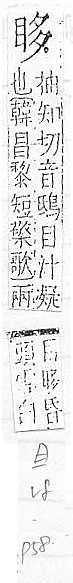 眵
抽知切音鴟目汁凝
也韓昌黎短檠歌兩
目眵昏
頭雪白
目
p58.